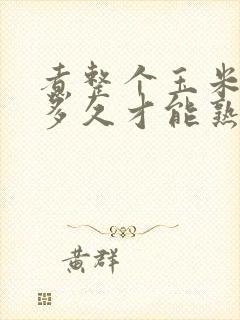 煮整个玉米
多久才能熟
黄群